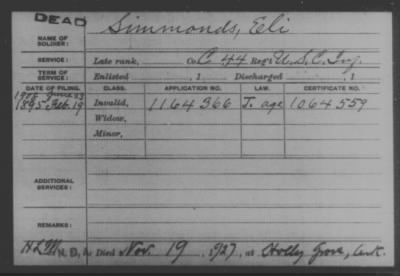 DEAD
NAME OF SOLDIER: Simmonds, Eli
SERVICE: Late rank, Co. C 44 Reg't U.S.C. Inf.
TERM OF SERVICE: Enlisted , 1 Discharged , 1
DATE OF FILING. CLASS. APPLICATION NO. LAW. CERTIFICATE NO.
1908 June 23
1895 Feb. 19 Invalid, 1164366 J. age 1064559
Widow,
Minor,
ADDITIONAL SERVICES:
REMARKS:
Died Nov. 19, 1927, at Holly Grove, Ark.